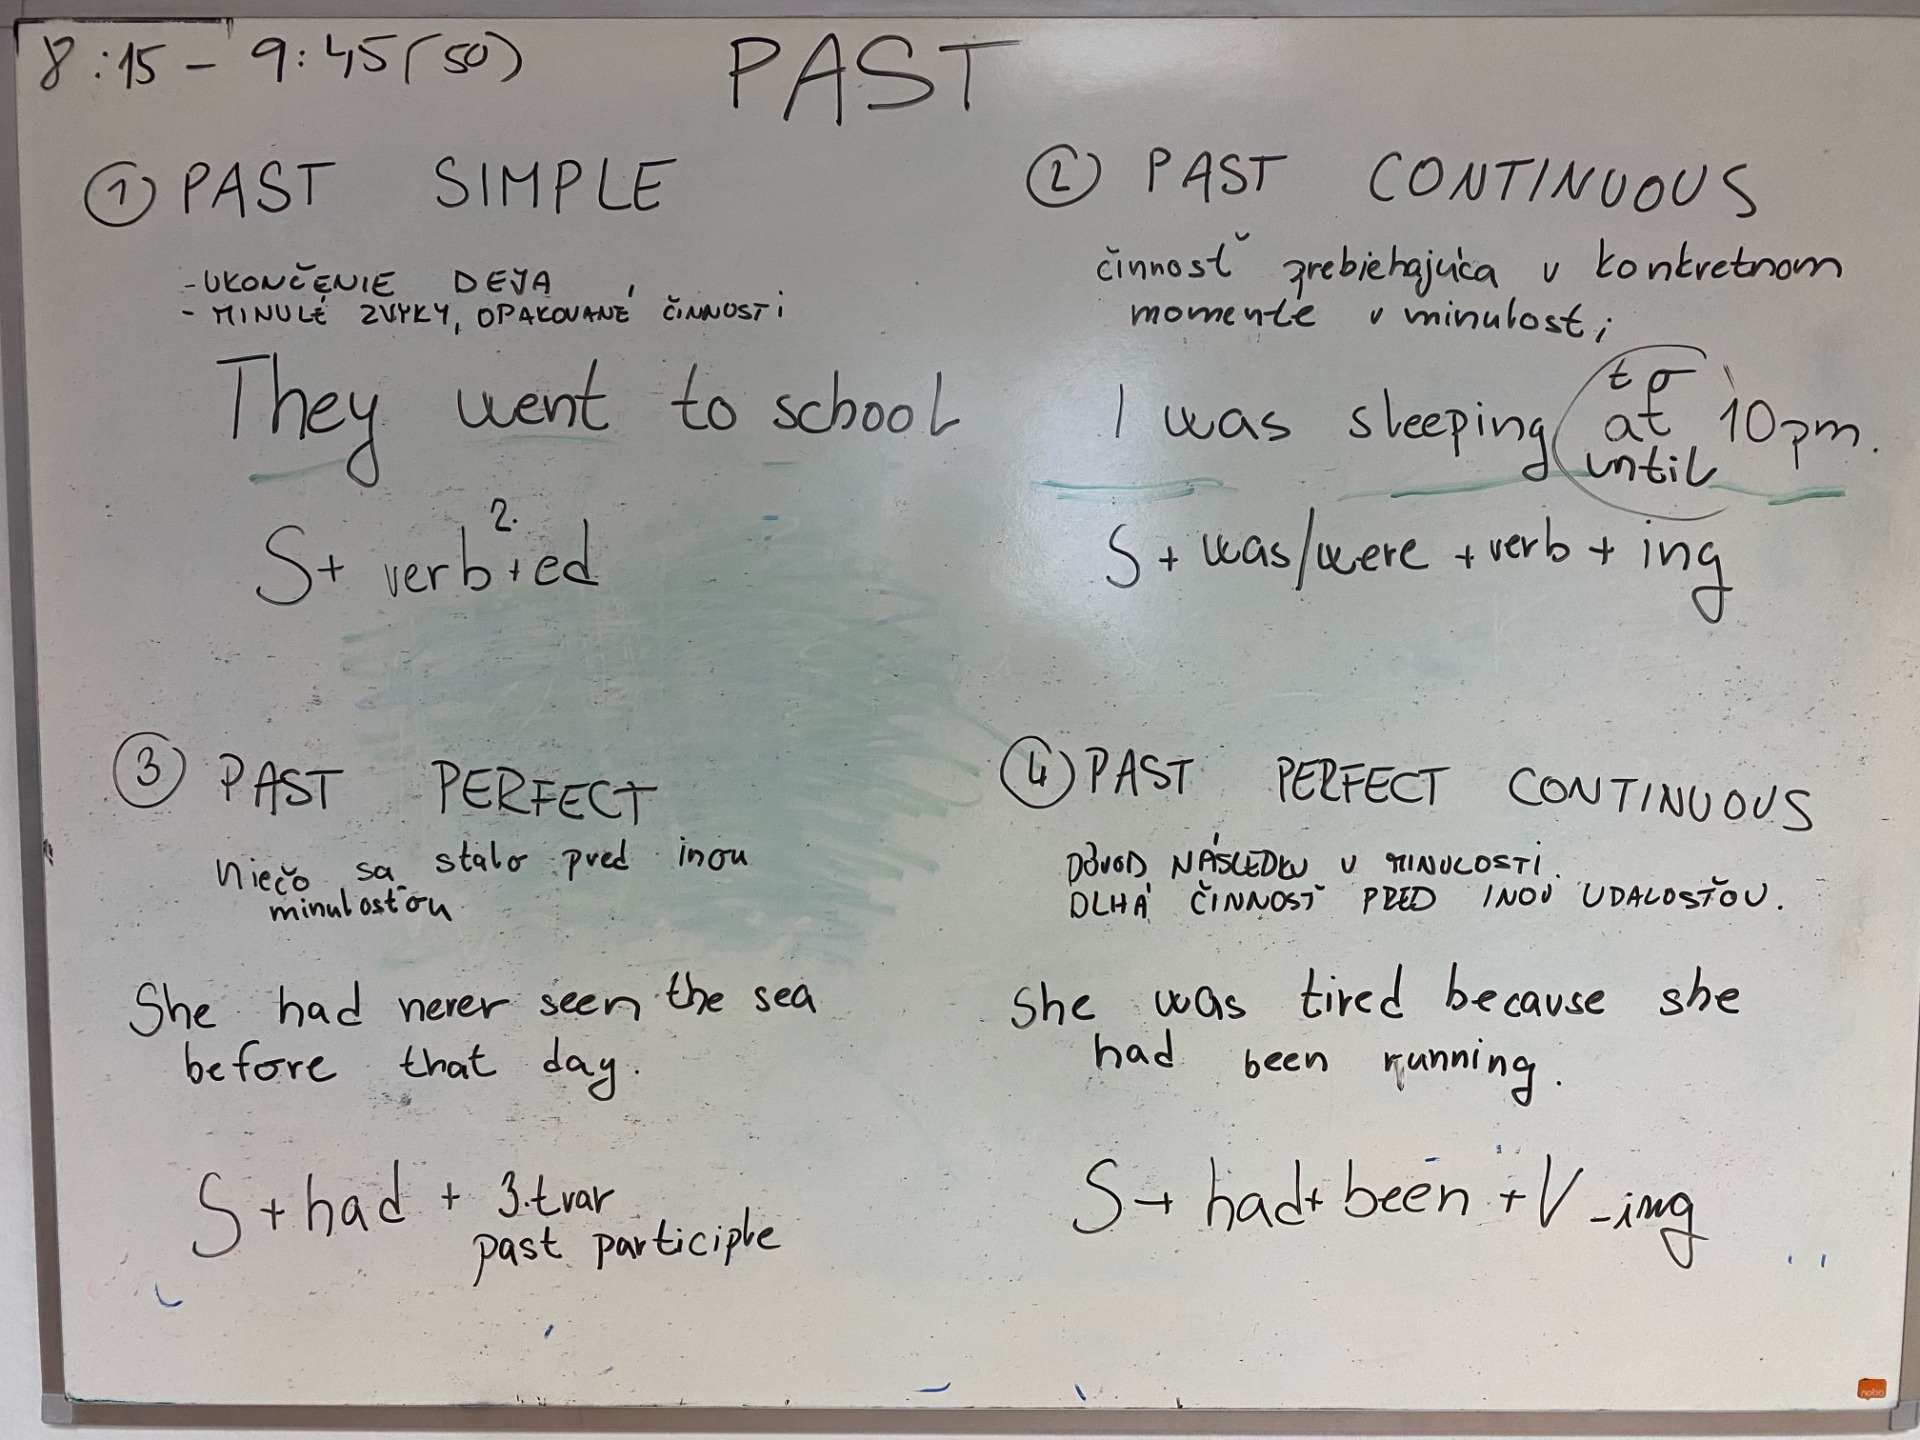 8:15 - 9:45 (50)
PAST
① PAST SIMPLE
- UKONČENIE DEJA
- MINULÉ ZVYKY, OPAKOVANÉ ČINNOSTI
They went to school
S + verb 2. + ed
② PAST CONTINUOUS
činnosť prebiehajúca v konkretnom
momente v minulosti
to
I was sleeping at 10pm.
until
S + was/were + verb + ing
③ PAST PERFECT
niečo sa stalo pred inou
minulosťou
She had never seen the sea
before that day.
S + had + 3. tvar
past participle
④ PAST PERFECT CONTINUOUS
DÔVOD NÁSLEDKU V MINULOSTI.
DLHÁ ČINNOSŤ PRED INOU UDALOSŤOU.
She was tired because she
had been running.
S + had + been + V -ing
nobo